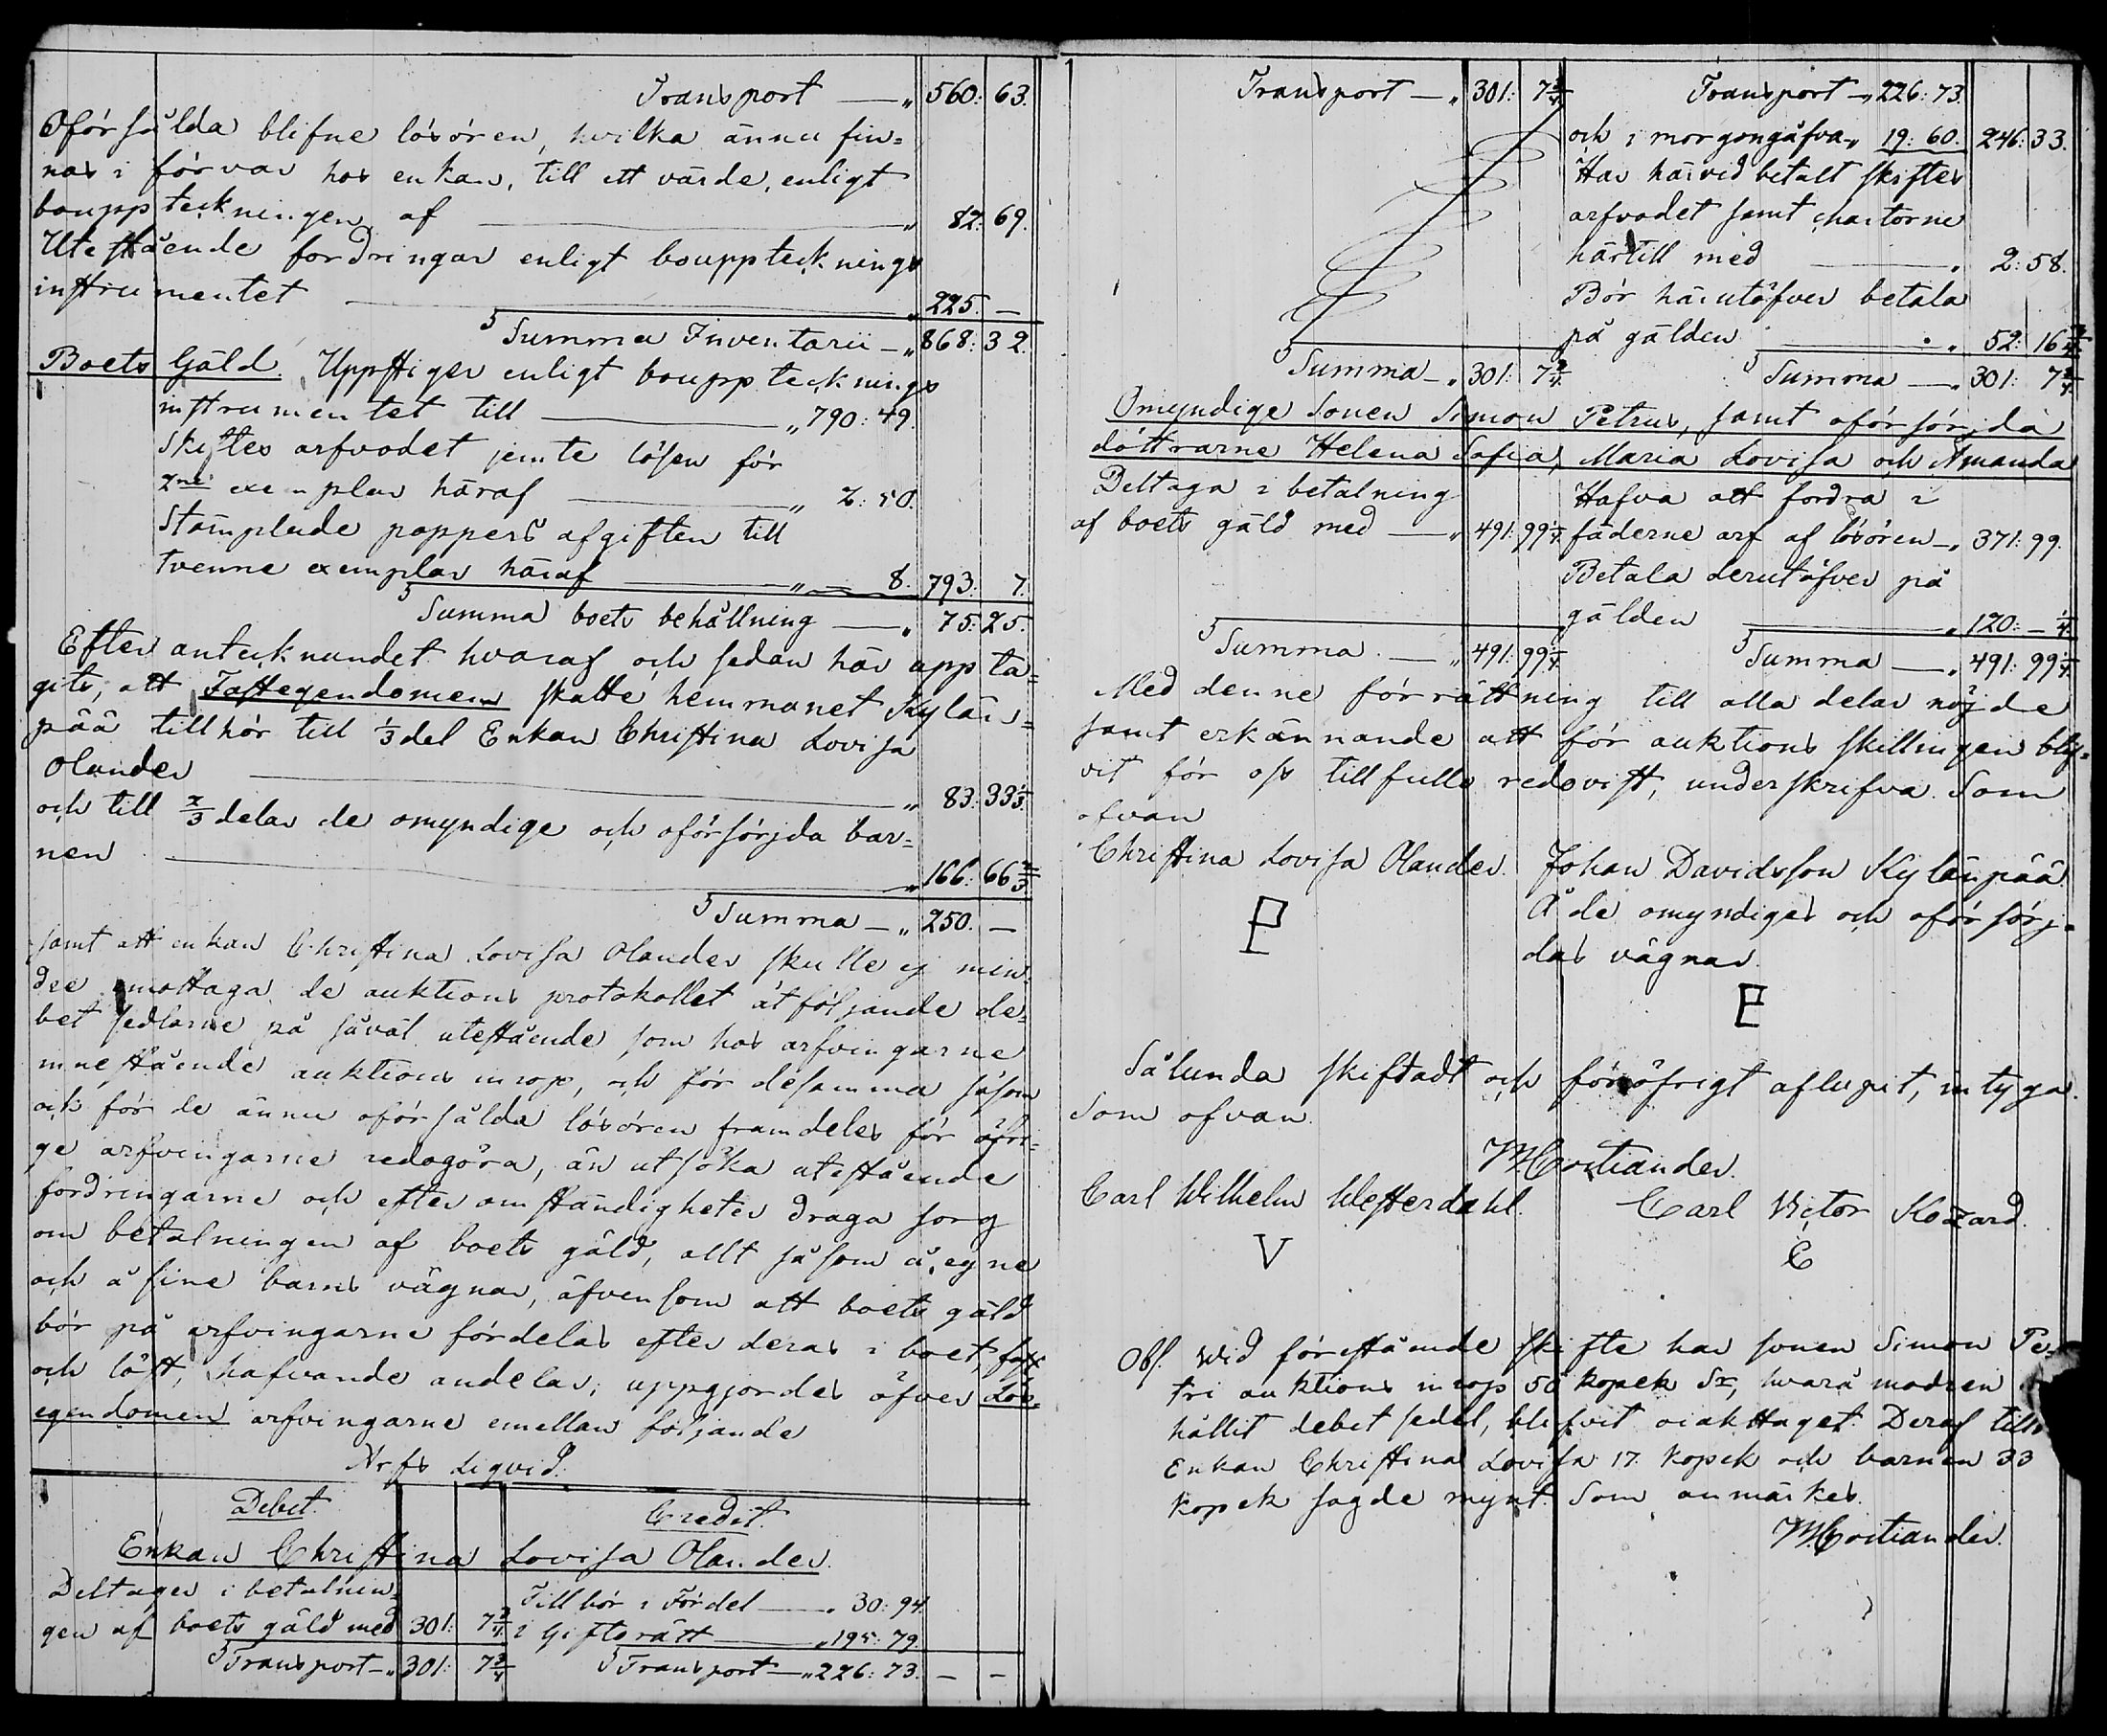 Transport — „ 560: 63.
Oförsålda blifne lösören, hvilka ännu fin=
nas i förvar hos enkan, till ett värde, enligt
bouppteckningen af — „ 82: 69.
Utestående fordringar enligt boupptecknings
instrumentet — „ 225. —
Summa Inventarii — „ 868: 32.
Boets Gäld. Uppstiger enligt boupptecknings
instrumentet till — „ 790: 49.
Skiftes arfvodet jemte lösen för
2ne exemplar häraf — „ 2: 50.
Stämplade pappers afgiften till
tvenne exemplar häraf — „ — 8. 793: 7.
Summa boets behållning — „ 75: 25.
Efter antecknandet hvaraf och sedan här uppta=
gits, att Fastegendomen skatte hemmanet Kylän=
pää tillhör till 1/3 del Enkan Christina Lovisa
Olander — „ 83: 33 1/3
och till 2/3 delar de omyndige och oförsörjda bar=
nen — „ 166: 66 2/3
Summa — „ 250. —
samt att enkan Christina Lovisa Olander skulle ej min=
dre emottaga de auktions protokollet åtföljande de=
bet sedlarne på såväl utestående som hos arfvingarne
innestående auktions inrop, och för desamma såsom
ock för de ännu oförsålda lösören framdeles för öfri=
ge arfvingarne redogöra, än utsöka utestående
fordringarne och efter omständigheter draga sorg
om betalningen af boets gäld, allt såsom å egne
och å sine barns vägnar, äfvensom att boets gäld
bör på arfvingarne fördelas efter deras i boet, fast
och löst, hafvande andelar; uppgjordes öfver Lös=
egendomen arfvingarne emellan följande
Arfs Liqvid.
Debet. Credit.
Enkan Christina Lovisa Olander.
Deltager i betalnin= Tillhör i Fördel — „ 30: 94.
gen af boets gäld med 301: 7 3/4 i Giftorätt — „ 195: 79.
Transport — „ 301: 7 3/4 Transport — „ 226: 73. — —
Transport — „ 301: 7 3/4 Transport — „ 226: 73.
och i morgongåfva „ 19: 60. 246: 33.
Har härvid betalt skiftes
arfvodet samt chartorne
härtill med — „ 2: 58.
Bör härutöfver betala
på gälden — „ 52: 16 3/4
Summa — „ 301: 7 3/4 Summa — „ 301: 7 3/4
Omyndige Sonen Simon Petrus, samt oförsörjda
döttrarne Helena Sofia, Maria Lovisa och Amanda
Deltaga i betalning Hafva att fordra i
af boets gäld med — „ 491: 99 1/4 fäderne arf af lösören — „ 371: 99.
Betala derutöfver på
gälden — „ 120: — 1/4
Summa — „ 491: 99 1/4 Summa — „ 491: 99 1/4
Med denne förrättning till alla delar nöjde
samt erkännande att för auktions skillingen blif=
vit för oss tillfullo redovist, underskrifva. Som
ofvan
Christina Lovisa Olander. Johan Davidsson Kylänpää
Å de omyndiges och oförsörj=
das vägnar.
Sålunda skiftadt och föröfrigt aflupit, intyga.
Som ofvan.
M Costiander.
Carl Wilhelm Westerdahl. Carl Victor Kozard.
V C
Obs. Wid förestående skifte har sonen Simon Pe=
tri auktions inrop 50 kopek Sr, hvarå modren
hållit debet sedel, blifvit oiakttaget. Deraf till
Enkan Christina Lovisa 17. kopek och barnen 33
kopek sagde mynt. Som anmärkes.
M Costiander.